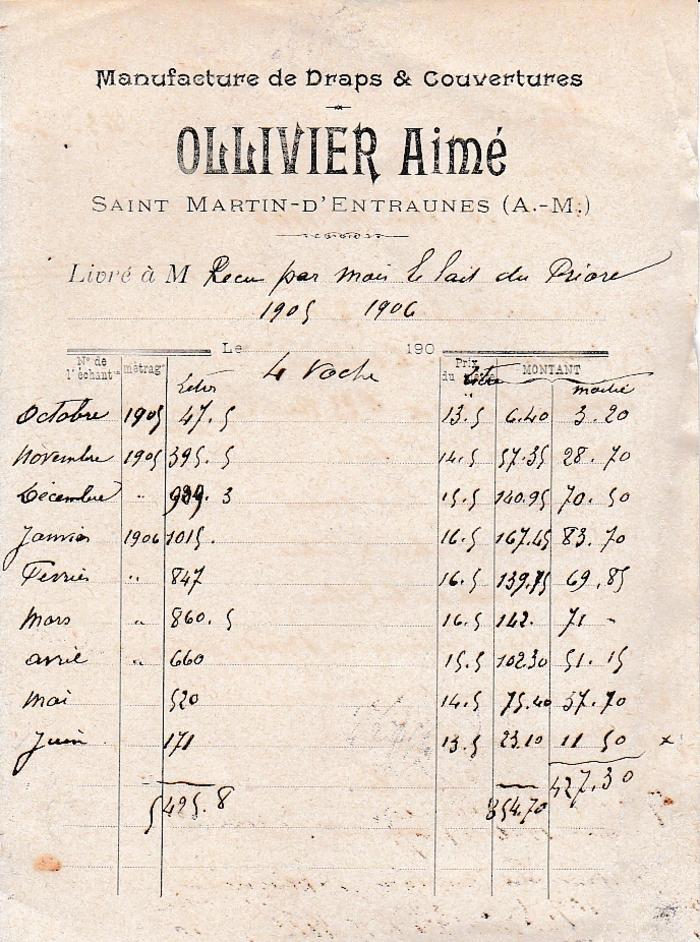 Manufacture de Draps & Couvertures
OLLIVIER Aimé
SAINT MARTIN-D'ENTRAUNES (A.-M.)
Livré à M Recu par mois le lait du Priore
1905 1906
Le 4 Vache 190
N° de l'échant métrag Litres Prix du litre MONTANT moitié
Octobre 1905 47.5 13.5 6.40 3.20
Novembre 1905 395.5 14.5 57.35 28.70
Décembre " 909.3 15.5 140.95 70.50
Janvier 1906 1015. 16.5 167.45 83.70
Fevrier " 847 16.5 139.75 69.85
Mars " 860.5 16.5 142. 71 -
avril " 660 15.5 102.30 51.15
Mai 520 14.5 75.40 37.70
Juin 171 13.5 23.10 11 50 x
5425.8 854.70 427.30